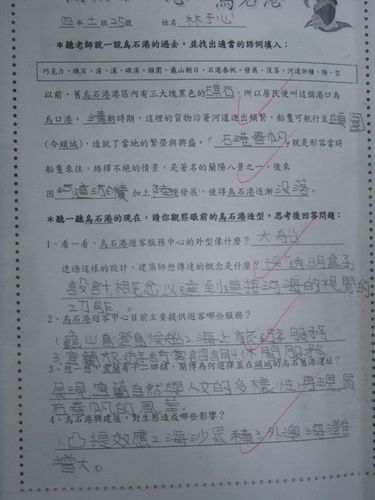 烏石港
四年土班25號 姓名 林于心
＊聽老師說一說烏石港的過去，並找出適當的語詞填入：
巧克力、礁石、清、漢、礁溪、頭圍、龜山朝日、石港春帆、發展、沒落、河道淤積、陸、空
以前，舊烏石港港區內有三大塊黑色的礁石，所以居民便叫這個港口為
烏口港。清朝時期，這裡的貨物沿著河道進出頻繁，船隻可航行至頭圍
(今頭城)，造就了當地的繁榮與興盛。「石港春帆」就是形容當時
船隻來往，絡繹不絕的情景，是著名的蘭陽八景之一。後來
因河道淤積加上陸運發展，使得烏石港逐漸沒落。
＊聽一聽烏石港的現在，請你觀察眼前的烏石港造型，思考後回答問題：
1、看一看，烏石港遊客服務中心的外型像什麼？大船
透過這樣的設計，建築師想傳達的概念是什麼？採透明盒子
設計概念以達到連接河海的視閱的
功能。
2、烏石港遊客中心目前主要提供遊客哪些服務？
1龜山島登島候船2海上旅遊服務
3宜蘭旅遊訪客諮詢4休閒服務
3、想一想，宜蘭有十二鄉鎮，蘭博為何選擇蓋在頭城的烏石舊港遺址？
展現宜蘭自然與人文的多樣性再現烏
石春帆的風華
4、烏石港興建後，對生態造成哪些影響？
1.凸堤效應2.海沙累積3外澳海灘
增大。